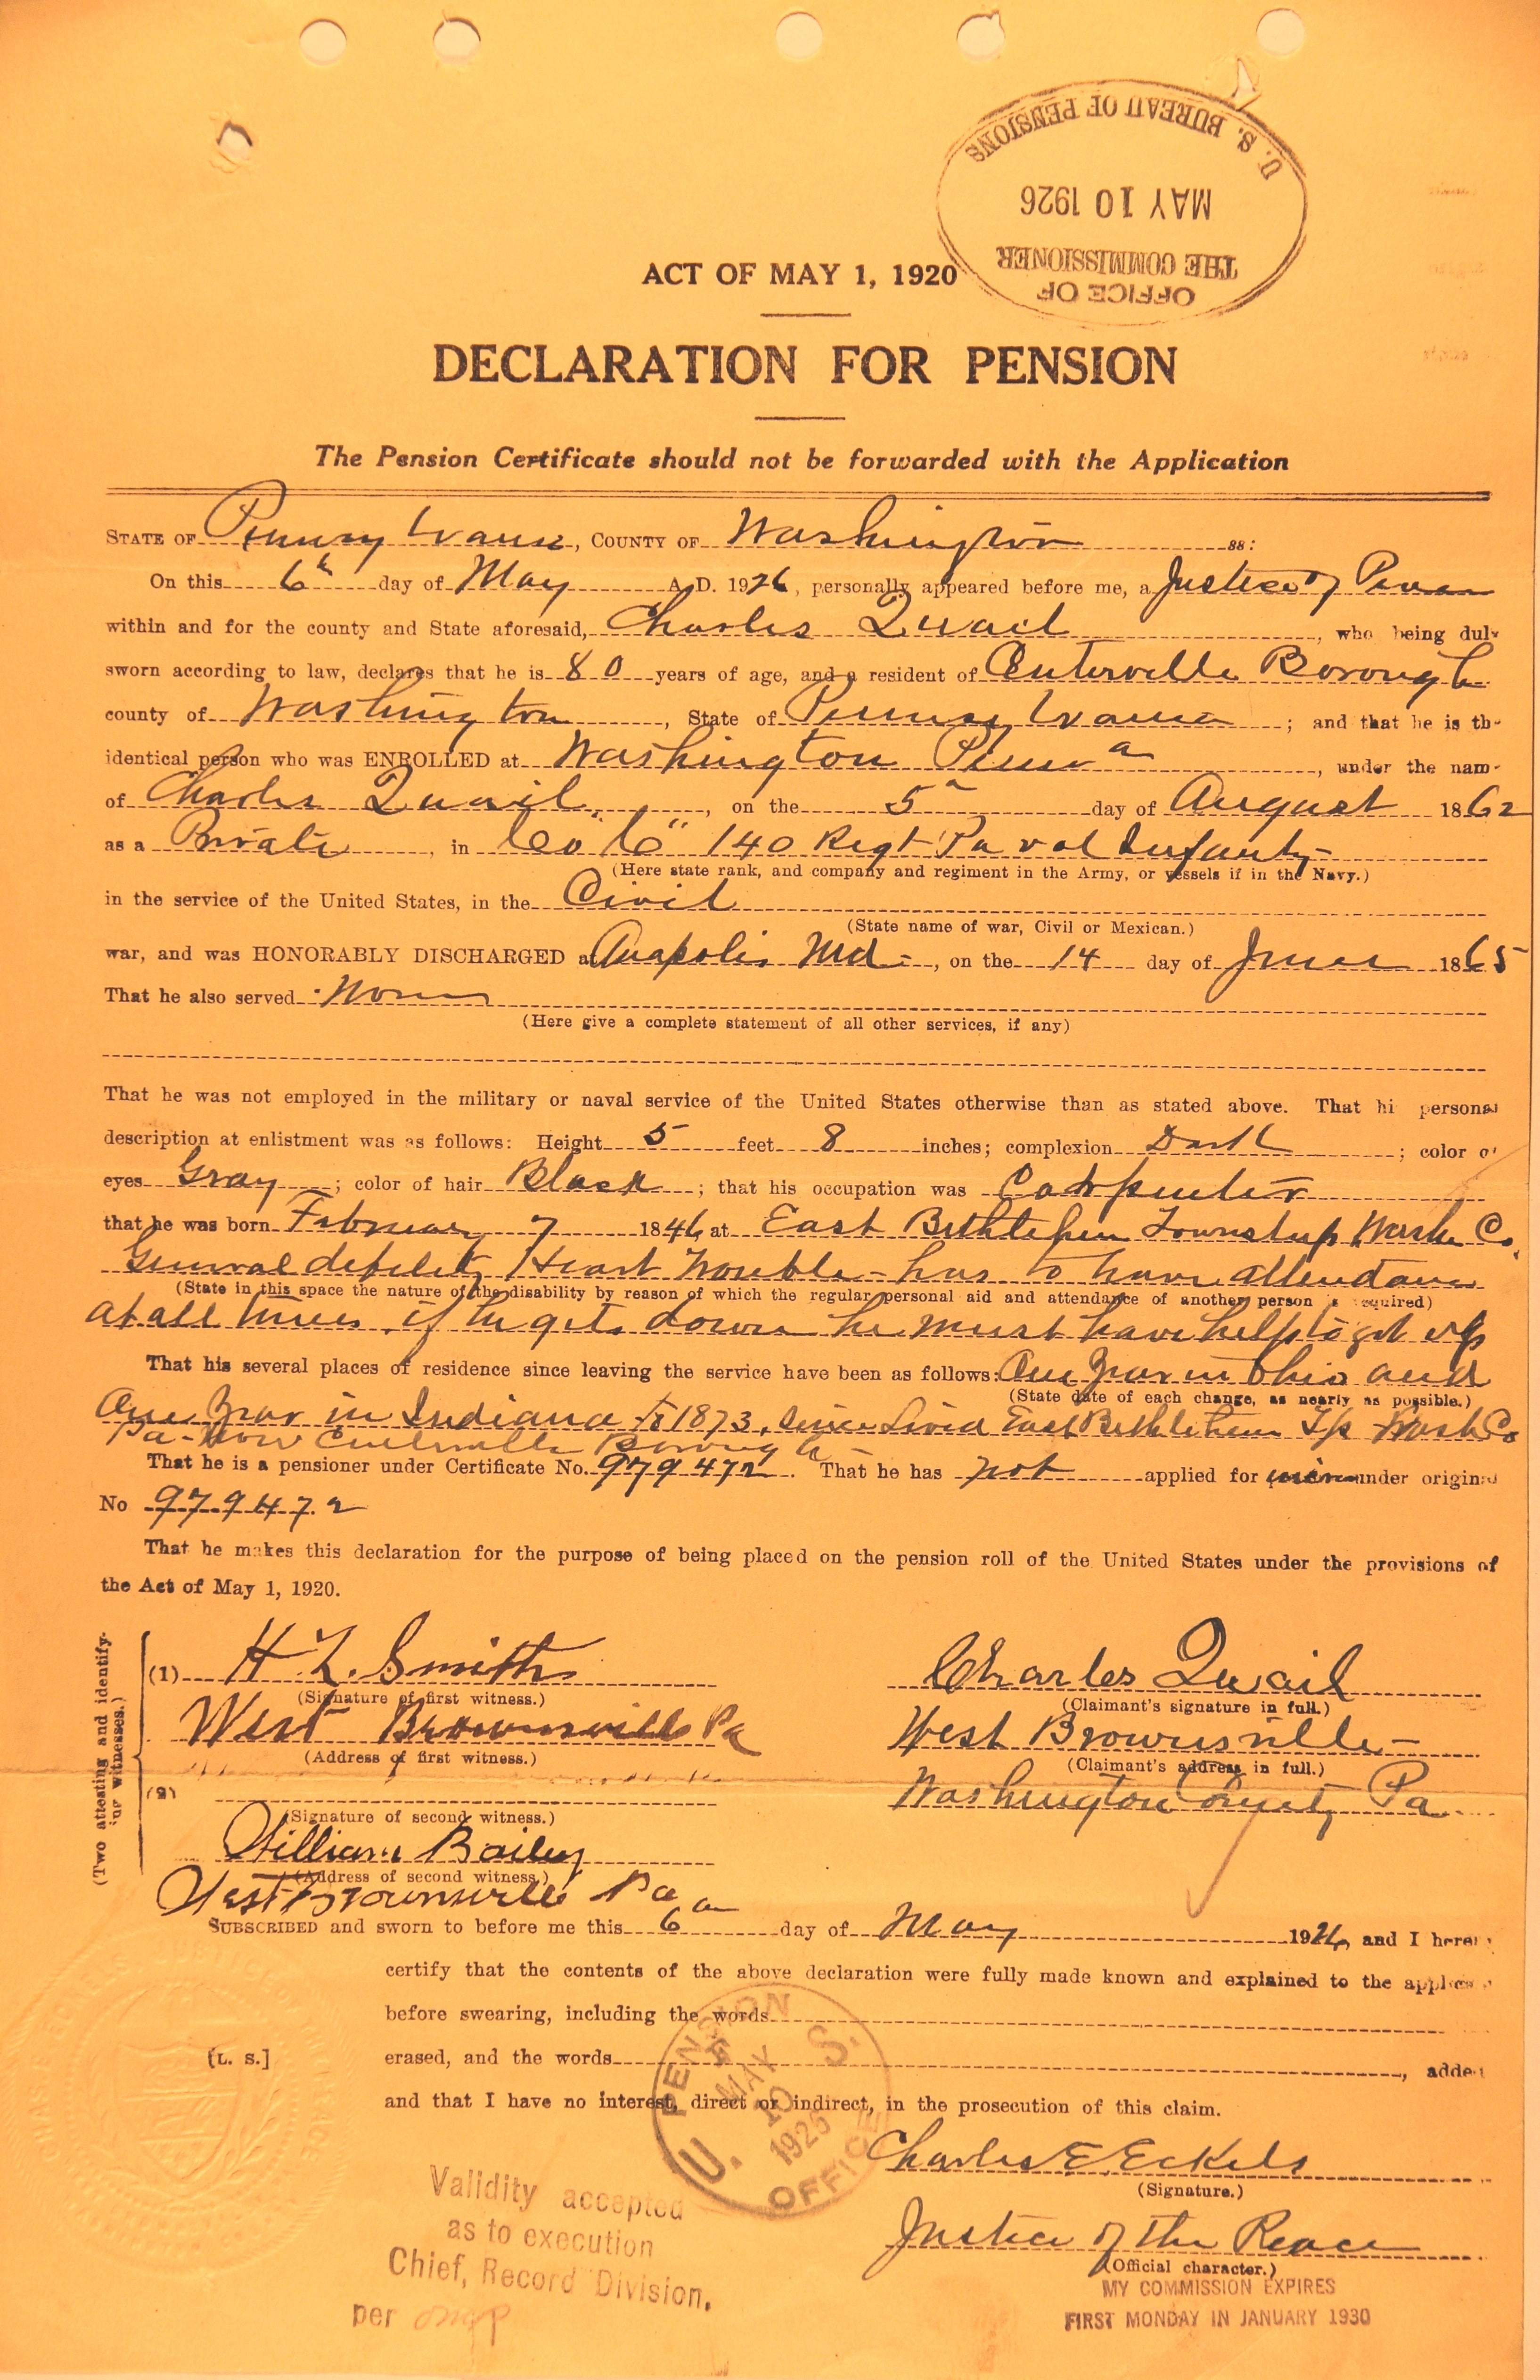 U. S. BUREAU OF PENSIONS
MAY 10 1926
THE COMMISSIONER
OFFICE OF
ACT OF MAY 1, 1920
DECLARATION FOR PENSION
The Pension Certificate should not be forwarded with the Application
STATE OF Pennsylvania, COUNTY OF Washington ss:
On this 6th day of May A. D. 1926, personally appeared before me, a Justice of Peace
within and for the county and State aforesaid, Charles Quail, who being duly
sworn according to law, declares that he is 80 years of age, and a resident of Centerville Borough
county of Washington, State of Pennsylvania; and that he is th
identical person who was ENROLLED at Washington Penna, under the nam
of Charles Quail, on the 5th day of August 1862
as a Private, in Co "C" 140 Regt Pa Vol Infanty
(Here state rank, and company and regiment in the Army, or vessels if in the Navy.)
in the service of the United States, in the Civil
(State name of war, Civil or Mexican.)
war, and was HONORABLY DISCHARGED at Anapolis Md, on the 14 day of June 1865
That he also served None
(Here give a complete statement of all other services, if any)
That he was not employed in the military or naval service of the United States otherwise than as stated above. That hi personal
description at enlistment was as follows: Height 5 feet 8 inches; complexion Dark; color o
eyes Gray; color of hair Black; that his occupation was Carpenter
that he was born February 7 1846 at East Bethlehem Township Wash Co.
General debility Heart Trouble - has to have attendance
(State in this space the nature of the disability by reason of which the regular personal aid and attendance of another person is required)
at all times if he gets down he must have help to get up
That his several places of residence since leaving the service have been as follows: One year in Ohio and
(State date of each change, as nearly as possible.)
One year in Indiana to 1873, since lived East Bethlehem Tp Wash Co
Pa - Now Centerville Borough
That he is a pensioner under Certificate No. 979472. That he has not applied for under original
No 979472
That he makes this declaration for the purpose of being placed on the pension roll of the United States under the provisions of
the Act of May 1, 1920.
(Two attesting and identifying witnesses.)
(1) H L. Smith
(Signature of first witness.)
West Brownsville Pa
(Address of first witness.)
(2)
(Signature of second witness.)
William Bailey
(Address of second witness.)
West Brownsville Pa
Charles Quail
(Claimant's signature in full.)
West Brownsville
(Claimant's address in full.)
Washington County Pa
SUBSCRIBED and sworn to before me this 6th day of May 1926, and I here
certify that the contents of the above declaration were fully made known and explained to the applica
before swearing, including the words
[L. S.] erased, and the words, added
and that I have no interest, direct or indirect, in the prosecution of this claim.
U. S. PENSION OFFICE
MAY 10 1926
Charles E. Eckels
(Signature.)
Justice of the Peace
(Official character.)
MY COMMISSION EXPIRES
FIRST MONDAY IN JANUARY 1930
Validity accepted
as to execution
Chief, Record Division.
per